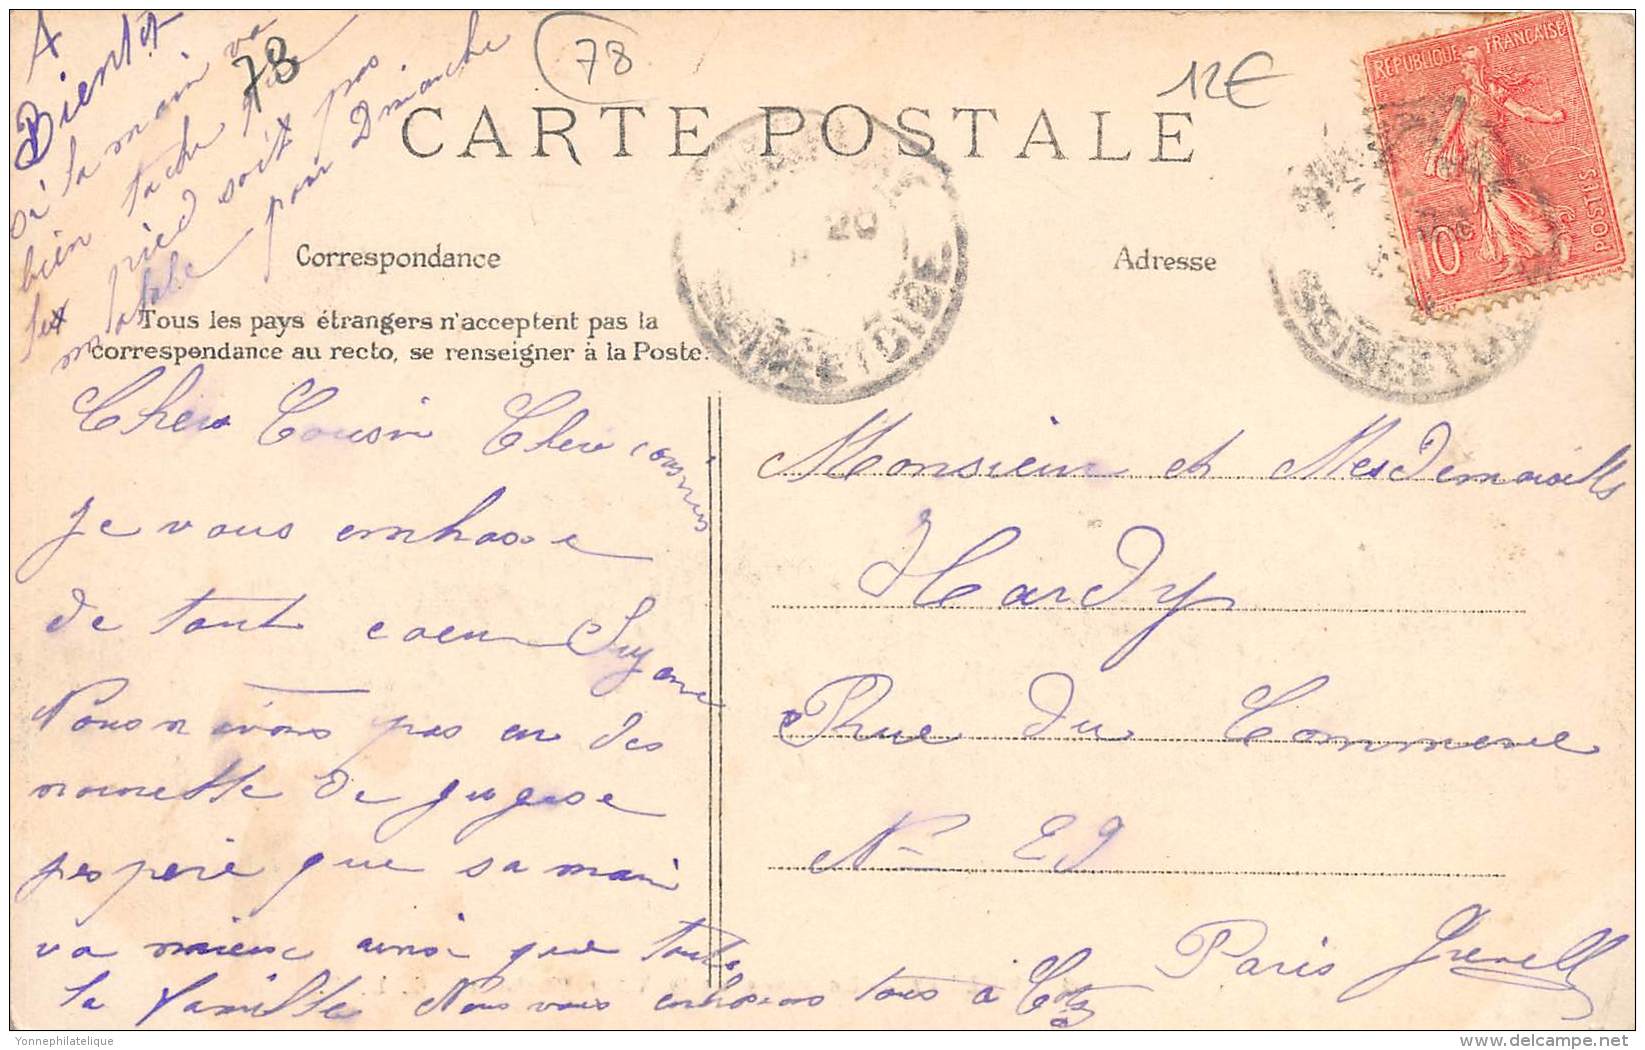 A
Bientôt
si la main va
bien tache que
ton pied soit pas
malade pour Dimanche
78
78
12€
CARTE POSTALE
REPUBLIQUE FRANÇAISE
POSTES
10c
20
SEINE ET OISE
SEINE ET OISE
Correspondance
Adresse
Tous les pays étrangers n'acceptent pas la
correspondance au recto, se renseigner à la Poste.
Cher Cousin Chere cousines
Je vous embrasse
de tout coeur Suzane
Nous n'avons pas eu des
nouvelle de
j'espere que sa main
va mieux ainsi que toute
la famille Nous vous embrassons tous à
Monsieur et MesDemoiselles
Hardy
Rue du Commerce
No 29
Paris Grenelle
Yonnephilatelique
www.delcampe.net